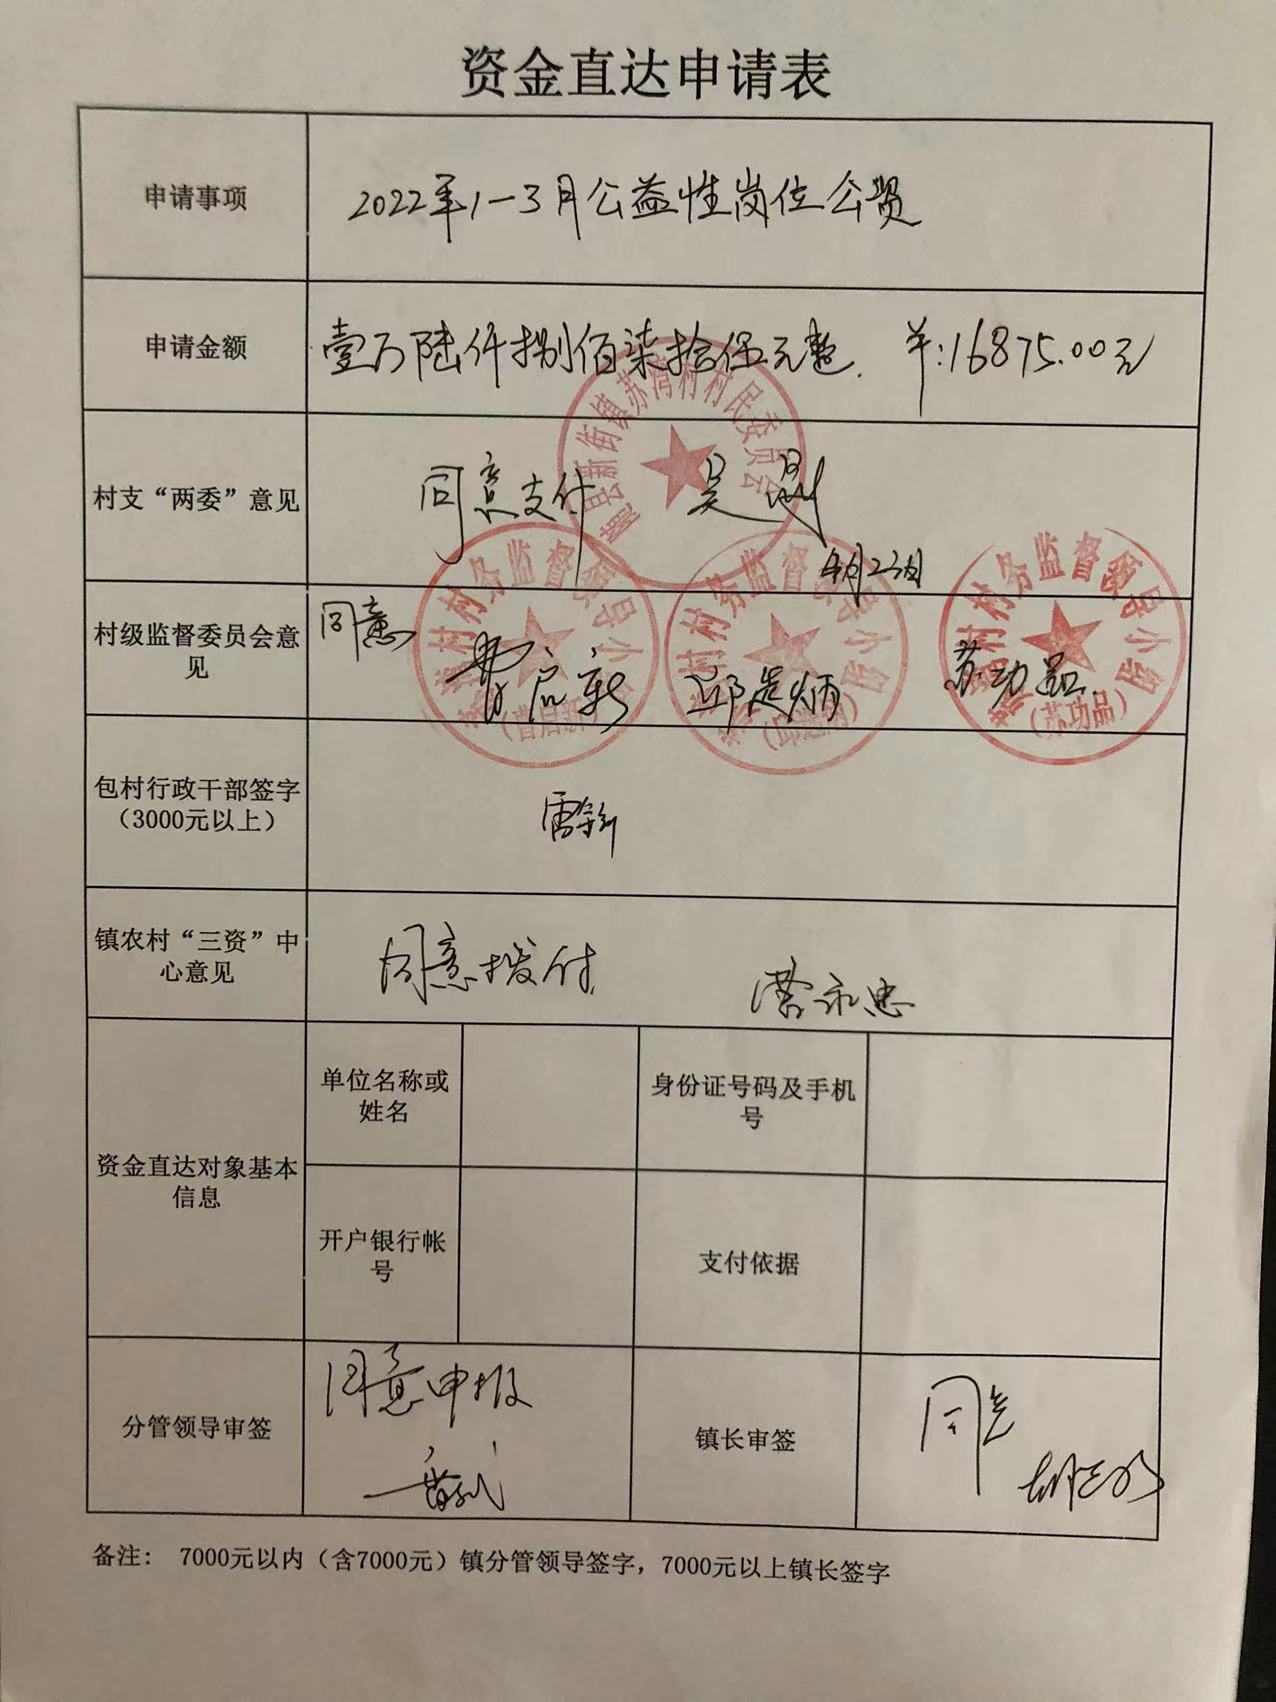 资金直达申请表
申请事项
2022年1-3月公益性岗位公资
申请金额
壹万陆仟捌佰柒拾伍元整. 羊:16875.00元
村支“两委”意见
同意支付 吴
4月23日
新街镇苏湾村村民委员会
村级监督委员会意
见
同意
曹启新 邱 炳 苏功品
村务监督领导小组
(曹启新)
村村务监督领导小组
村村务监督领导小组
(苏功品)
包村行政干部签字
(3000元以上)
雷
镇农村“三资”中
心意见
同意拨付 永忠
资金直达对象基本
信息
单位名称或
姓名
身份证号码及手机
号
开户银行帐
号
支付依据
分管领导审签
同意申报
镇长审签
同意
备注: 7000元以内(含7000元)镇分管领导签字,7000元以上镇长签字